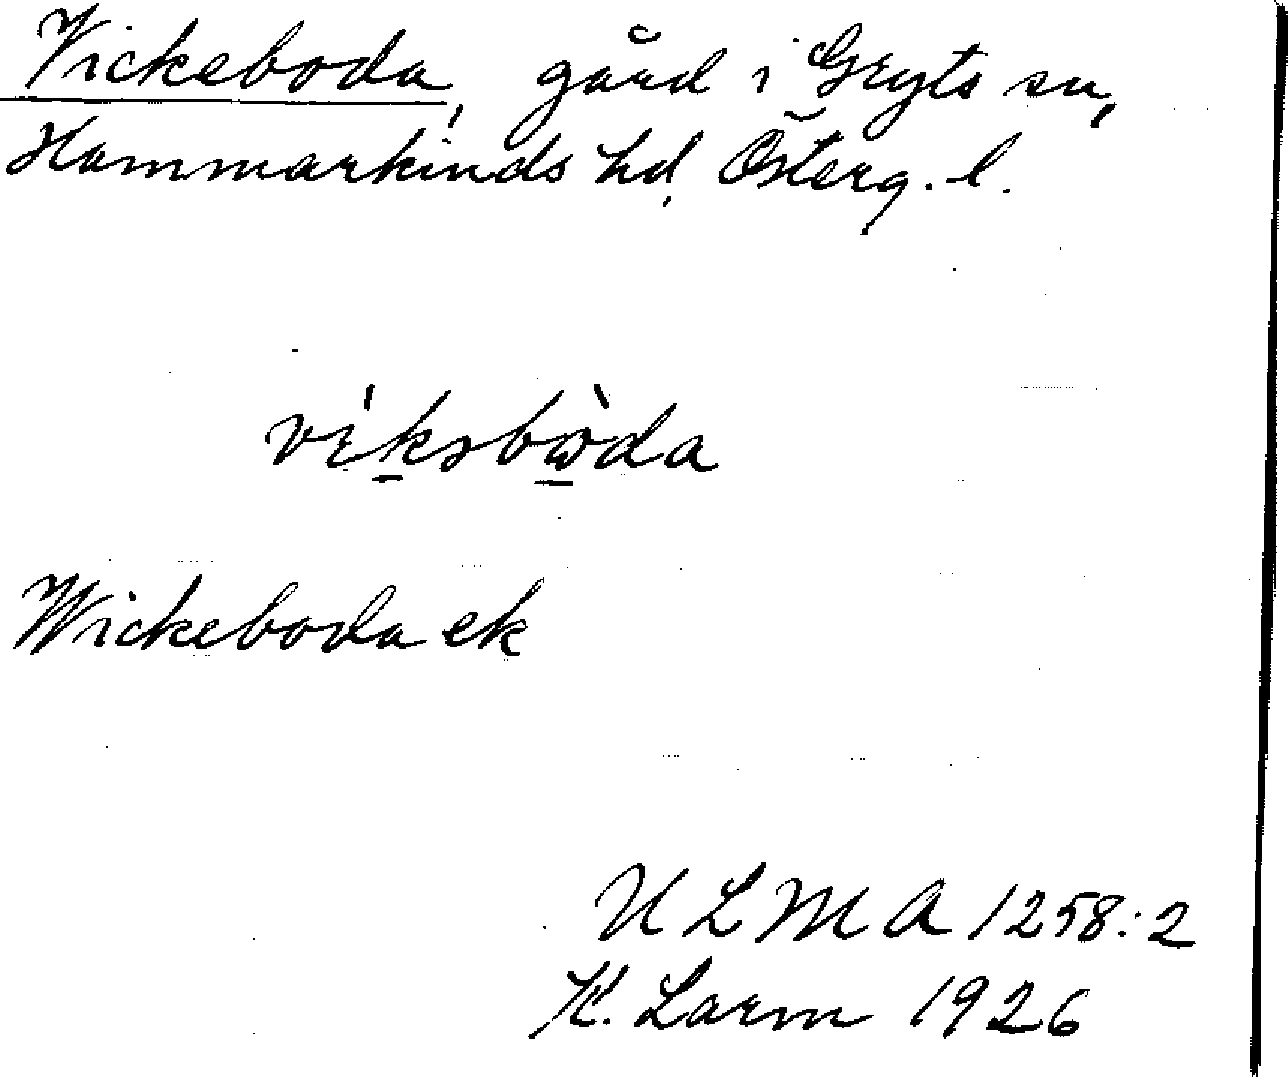 Vickeboda, gård i Gryts sn,
Hammarkinds hd, Österg. l.
vi̇́ksbὼda
Wickeboda ek
ULMA 1258:2
K. Larm 1926